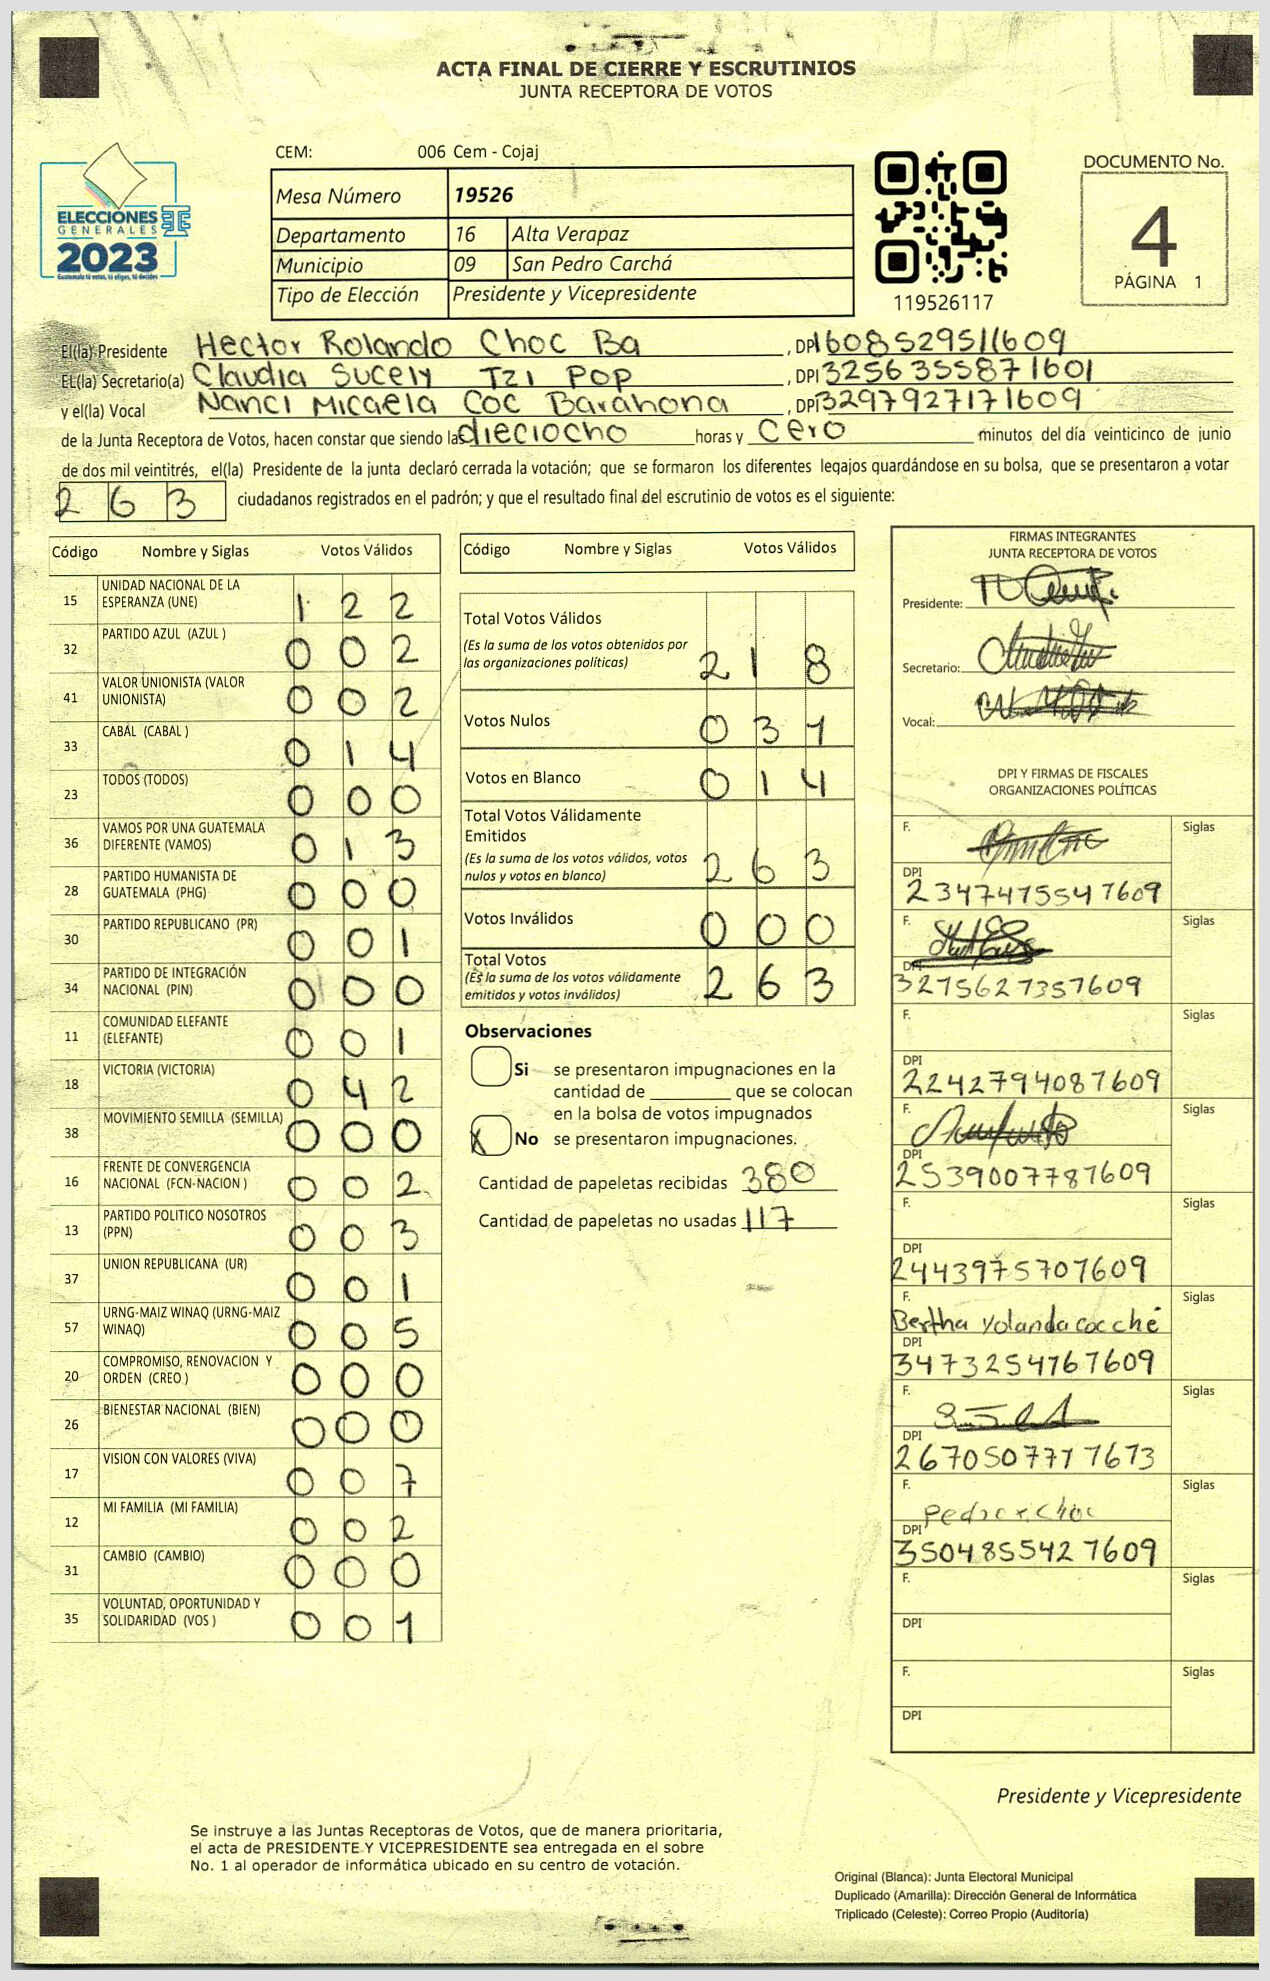 ACTA FINAL DE CIERRE Y ESCRUTINIOS
JUNTA RECEPTORA DE VOTOS
CEM: 006 Cem - Cojaj
ELECCIONES
GENERALES
2023
Guatemala tú votas, tú eliges, tú decides
Mesa Número 19526
Departamento 16 Alta Verapaz
Municipio 09 San Pedro Carchá
Tipo de Elección Presidente y Vicepresidente
119526117
DOCUMENTO No.
4
PÁGINA 1
El(la) Presidente Hector Rolando Choc Ba, DPI 1608529511609
EL(la) Secretario(a) Claudia Sucely Tzi Pop, DPI 3256355871601
y el(la) Vocal Nanci Micaela Coc Barahona, DPI 3297927171609
de la Junta Receptora de Votos, hacen constar que siendo las dieciocho horas y cero minutos del día veinticinco de junio
de dos mil veintitrés, el(la) Presidente de la junta declaró cerrada la votación; que se formaron los diferentes legajos guardándose en su bolsa, que se presentaron a votar
263 ciudadanos registrados en el padrón; y que el resultado final del escrutinio de votos es el siguiente:
Código Nombre y Siglas Votos Válidos
15 UNIDAD NACIONAL DE LA ESPERANZA (UNE) 1 2 2
32 PARTIDO AZUL (AZUL ) 0 0 2
41 VALOR UNIONISTA (VALOR UNIONISTA) 0 0 2
33 CABAL (CABAL ) 0 1 4
23 TODOS (TODOS) 0 0 0
36 VAMOS POR UNA GUATEMALA DIFERENTE (VAMOS) 0 1 3
28 PARTIDO HUMANISTA DE GUATEMALA (PHG) 0 0 0
30 PARTIDO REPUBLICANO (PR) 0 0 1
34 PARTIDO DE INTEGRACIÓN NACIONAL (PIN) 0 0 0
11 COMUNIDAD ELEFANTE (ELEFANTE) 0 0 1
18 VICTORIA (VICTORIA) 0 4 2
38 MOVIMIENTO SEMILLA (SEMILLA) 0 0 0
16 FRENTE DE CONVERGENCIA NACIONAL (FCN-NACION ) 0 0 2
13 PARTIDO POLITICO NOSOTROS (PPN) 0 0 3
37 UNION REPUBLICANA (UR) 0 0 1
57 URNG-MAIZ WINAQ (URNG-MAIZ WINAQ) 0 0 5
20 COMPROMISO, RENOVACION Y ORDEN (CREO ) 0 0 0
26 BIENESTAR NACIONAL (BIEN) 0 0 0
17 VISION CON VALORES (VIVA) 0 0 7
12 MI FAMILIA (MI FAMILIA) 0 0 2
31 CAMBIO (CAMBIO) 0 0 0
35 VOLUNTAD, OPORTUNIDAD Y SOLIDARIDAD (VOS ) 0 0 1
Código Nombre y Siglas Votos Válidos
Total Votos Válidos
(Es la suma de los votos obtenidos por
las organizaciones políticas) 2 1 8
Votos Nulos 0 3 1
Votos en Blanco 0 1 4
Total Votos Válidamente
Emitidos
(Es la suma de los votos válidos, votos
nulos y votos en blanco) 2 6 3
Votos Inválidos 0 0 0
Total Votos
(Es la suma de los votos válidamente
emitidos y votos inválidos) 2 6 3
Observaciones
Si se presentaron impugnaciones en la
cantidad de ________ que se colocan
en la bolsa de votos impugnados
X No se presentaron impugnaciones.
Cantidad de papeletas recibidas 380
Cantidad de papeletas no usadas 117
FIRMAS INTEGRANTES
JUNTA RECEPTORA DE VOTOS
Presidente:
Secretario:
Vocal:
DPI Y FIRMAS DE FISCALES
ORGANIZACIONES POLÍTICAS
F. Siglas
DPI 2347475547609
F. Siglas
DPI 3275627357609
F. Siglas
DPI 2242794087609
F. Siglas
DPI 2539007787609
F. Siglas
DPI 2443975707609
F. Bertha Yolanda coc ché Siglas
DPI 3473254767609
F. Siglas
DPI 2670507777673
F. Pedro Choc Siglas
DPI 3504855427609
F. Siglas
DPI
F. Siglas
DPI
Presidente y Vicepresidente
Se instruye a las Juntas Receptoras de Votos, que de manera prioritaria,
el acta de PRESIDENTE Y VICEPRESIDENTE sea entregada en el sobre
No. 1 al operador de informática ubicado en su centro de votación.
Original (Blanca): Junta Electoral Municipal
Duplicado (Amarilla): Dirección General de Informática
Triplicado (Celeste): Correo Propio (Auditoría)